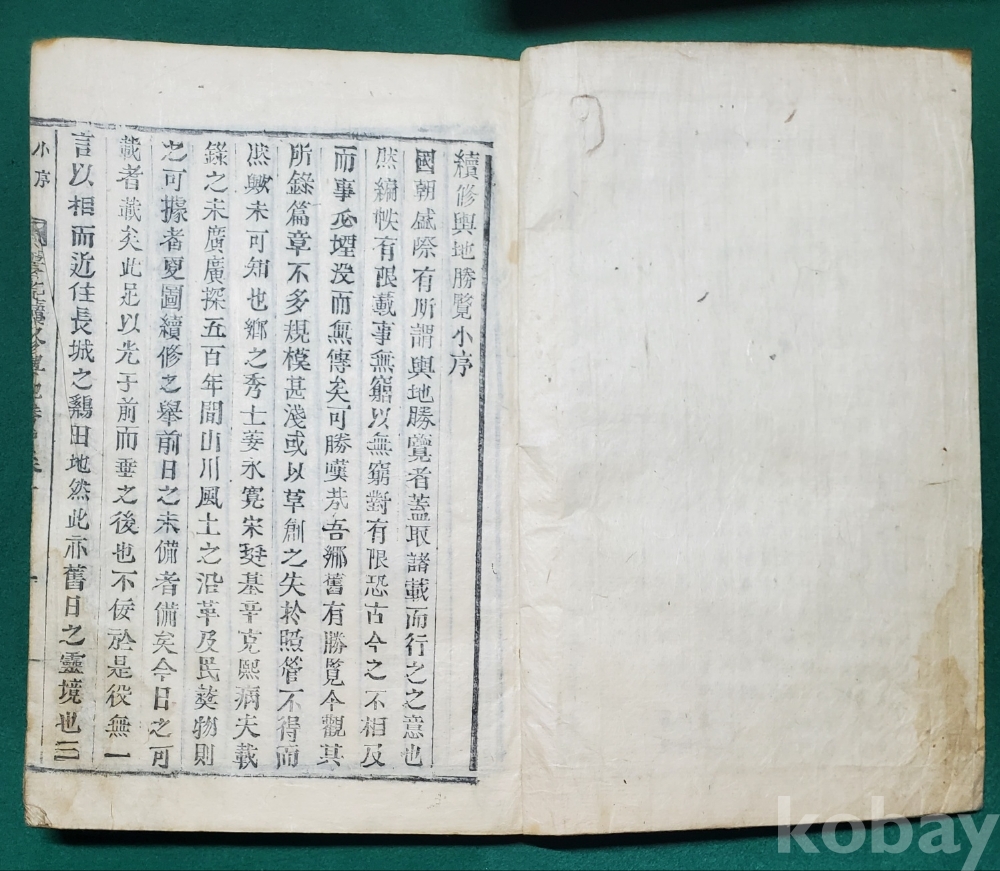 續修輿地勝覽小序
國朝盛際有所謂輿地勝覽者蓋取諸載而行之之意也
然編帙有限載事無窮以無窮對有限恐古今之不相及
而事必堙沒而無傳矣可勝嘆哉吾鄉舊有勝覽今觀其
所錄篇章不多規模甚淺或以草創之失於照管不得而
然歟未可知也鄉之秀士姜永寬宋基辛克熙病夫載
錄之未廣廣探五百年間山川風土之沿革及民彛物則
之可據者更圖續修之舉前日之未備者備矣今日之可
載者載矣此足以光于前而垂之後也不佞於是役無一
言以相而近住長城之鷄田地然此亦舊日之靈境也三
小序
kobay